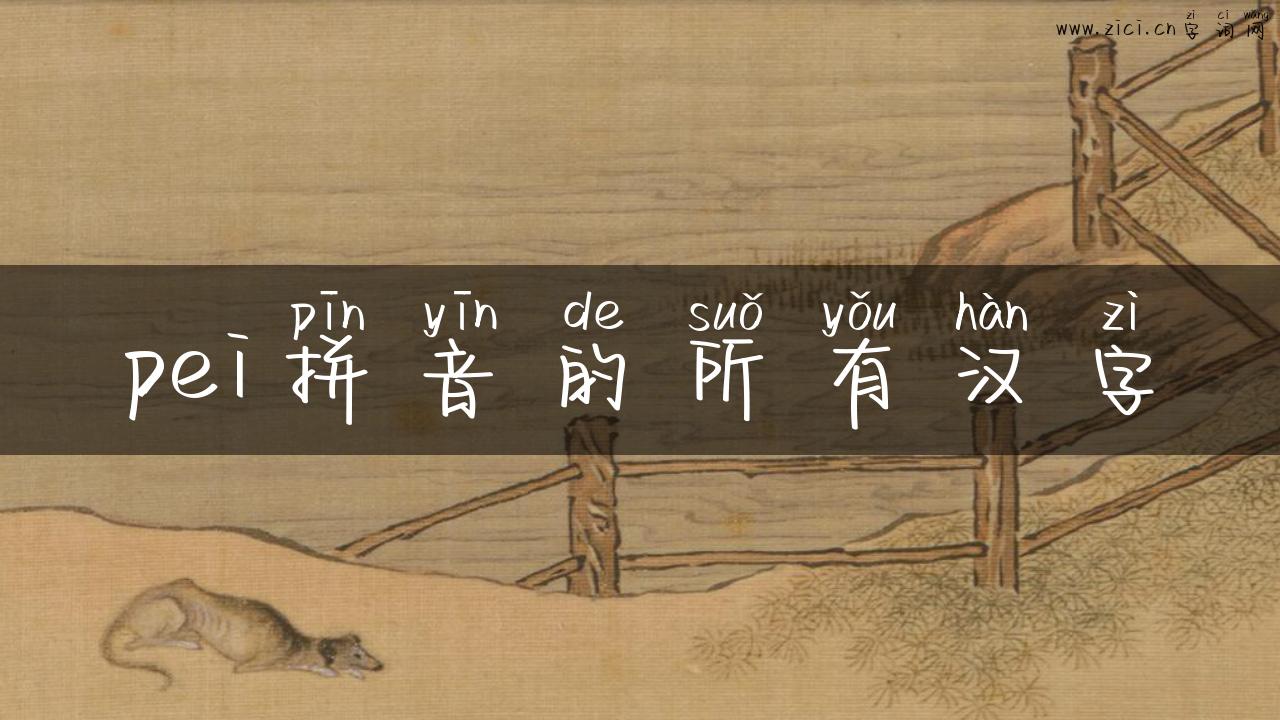 zì cí wǎng
www.zici.cn 字词网
pīn yīn de suǒ yǒu hàn zì
pei拼音的所有汉字